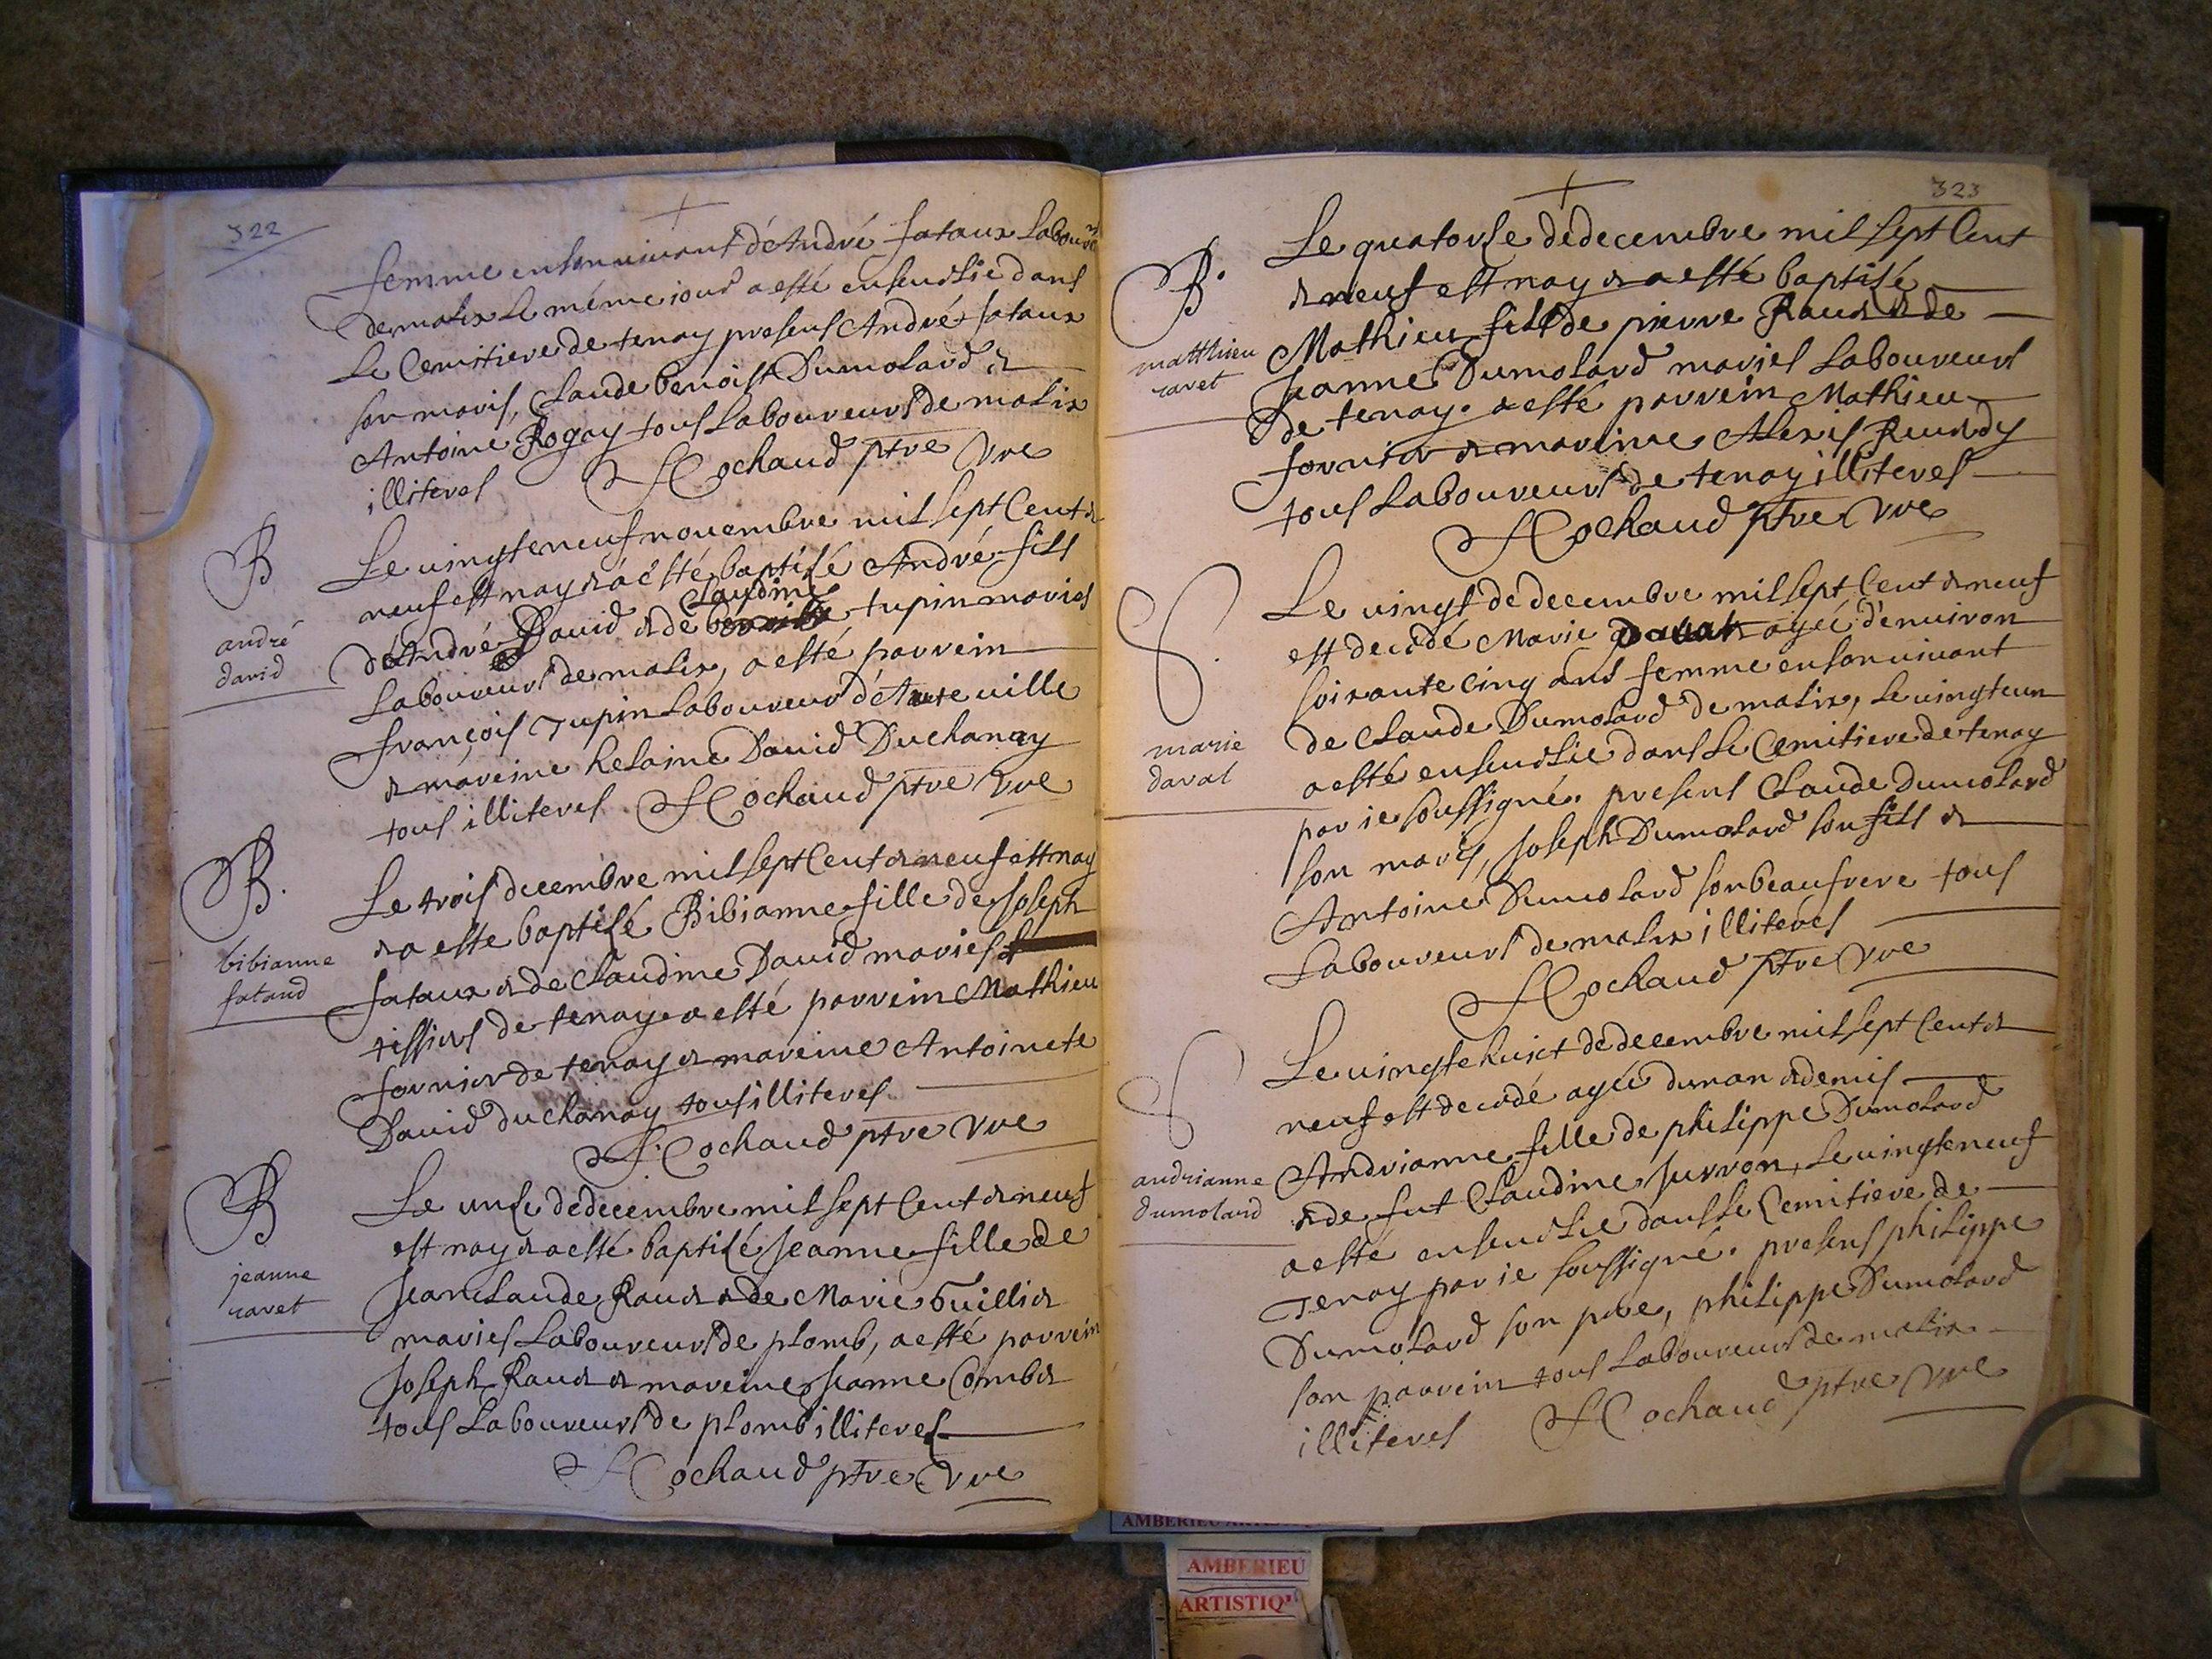 322
femme en son vivant d'André fataux Laboure
de malix le même iour a esté enseuelie dans
Le Cemitiere de tenay presens André fataux
son maris, Claude benoist Dumolard &
Antoine Rogay tous Laboureurs de malix
illiteres
Cochaud ptre vre
B
andré
david
Le vingteneuf nouembre mil sept Cent &
neuf est nay & a esté baptisé André fils
Claudine
d'André David & de tupin maries
Laboureurs de malix, a esté parrein
françois Tupin Laboureur d'Auteuille
& mareine helaine David Duchanay
tous illiteres Cochaud ptre vre
B.
bibianne
fataud
Le trois decembre mil sept Cent & neuf est nay
& a esté baptisé Bibianne fille de Joseph
fataux & de Claudine David maries
tissiers de tenay a esté parrein Mathieu
fornier de tenay & mareine Antoinete
David duchanay tous illiteres
Cochaud ptre vre
B
jeanne
ravet
Le unse de decembre mil sept Cent & neuf
est nay & a esté baptisé Jeanne fille de
Jean Claude Raue & de Marie Guillie
maries Laboureurs de plomb, a esté parrein
Joseph Raue & mareine Jeanne Combe
tous Laboureurs de plomb illiteres
Cochaud ptre vre
323
B.
matthieu
ravet
Le quatorse de decembre mil sept Cent
& neuf est nay & a esté baptisé
Mathieu fils de pierre Raue & de
Jeanne Dumolard maries Laboureurs
de tenay. a esté parrein Mathieu
fornier & mareine Alexis
tous Laboureurs de tenay illiteres
Cochaud ptre vre
S.
marie
daval
Le vingt de decembre mil sept Cent & neuf
est decedé Marie Daval agée d'enuiron
soixante cinq ans femme en son viuant
de Claude Dumolard de malix, le vingteun
a esté enseuelie dans le Cemitiere de tenay
par ie soussigné. presens Claude Dumolard
son maris, Joseph Dumolard son fils &
Antoine Dumolard son beaufrere tous
Laboureurs de malix illiteres
Cochaud ptre vre
S
andrianne
dumolard
Le vingtehuict de decembre mil sept Cent &
neuf est decedé agée dun an & demis
Andrianne fille de philippe Dumolard
& de fut Claudine Jurron, le vingteneuf
a esté enseuelie dans le Cemitiere de
Tenay par ie soussigné. presens philippe
Dumolard son pere, philippe Dumolard
son parrein tous Laboureurs de malix
illiteres Cochaud ptre vre
AMBERIEU
AMBERIEU
ARTISTIQ